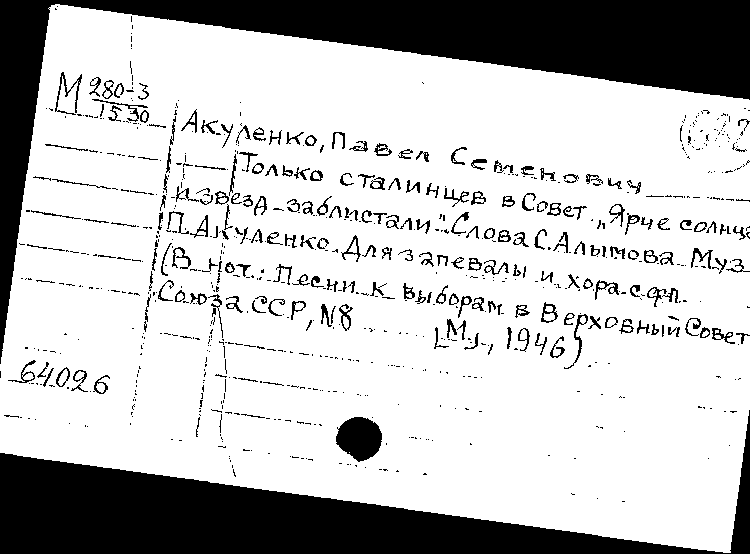 М 280-3
15 30
(622
Акуленко, Павел Семенович
Только сталинцев в Совет. „Ярче солнца
и звезд заблистали". Слова С. Алымова Муз
П. Акуленко. Для запевалы и хора с фп.
(В нот.: Песни к выборам в Верховный Совет
Союза ССР, N8 [М.], 1946).
64026